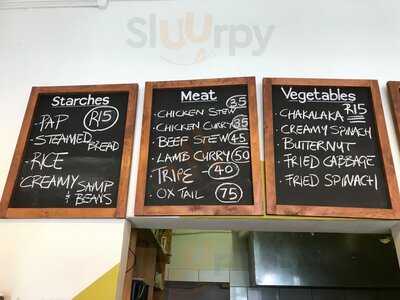 Sluurpy
Starches
R15
· PAP
· STEAMED BREAD
· RICE
· CREAMY SAMP & BEANS
Meat
· CHICKEN STEW 35
· CHICKEN CURRY 35
· BEEF STEW 45
· LAMB CURRY 60
· TRIPE - 40
· OX TAIL 75
Vegetables
R15
· CHAKALAKA
· CREAMY SPINACH
· BUTTERNUT
· FRIED CABBAGE
· FRIED SPINACH